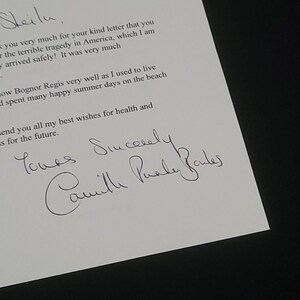 Sheila,
k you very much for your kind letter that you
r the terrible tragedy in America, which I am
y arrived safely! It was very much
now Bognor Regis very well as I used to live
d spent many happy summer days on the beach
send you all my best wishes for health and
ss for the future.
Yours Sincerely
Camilla Parker Bowles